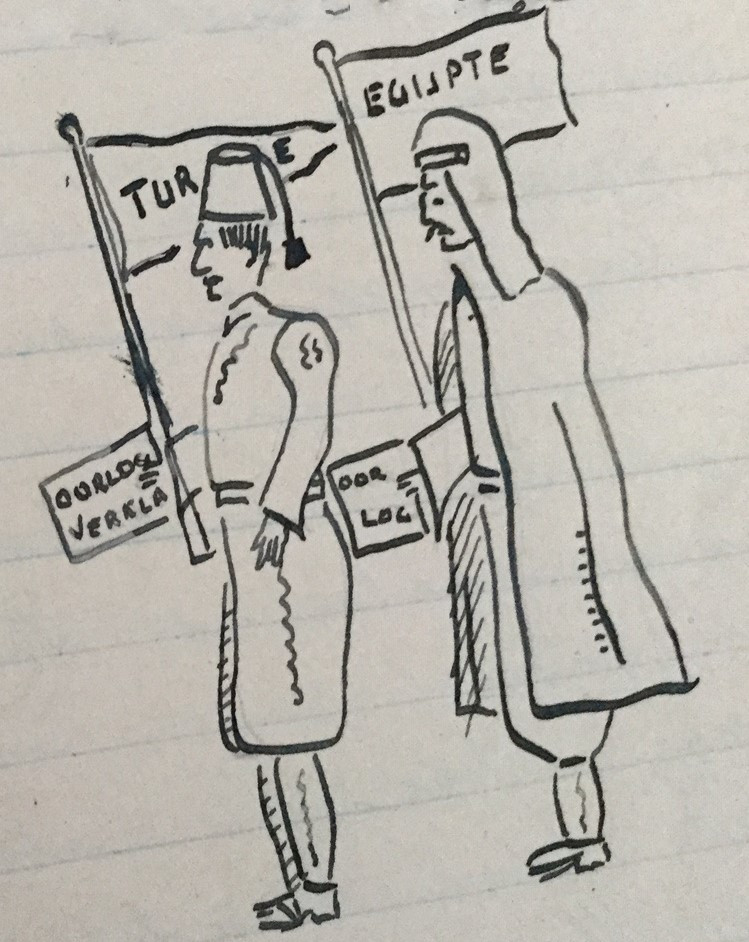 EGIJPTE
TUR E
OORLOG=
VERKLA
OOR=
LOG